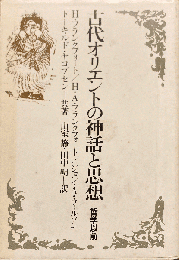 古代オリエントの神話と思想
哲学以前
H・フランクフォート/H・A・フランクフォート
ジョン・A・ウィルソン
トーキルド・ヤコブセン 共著 山室静・田中明 訳